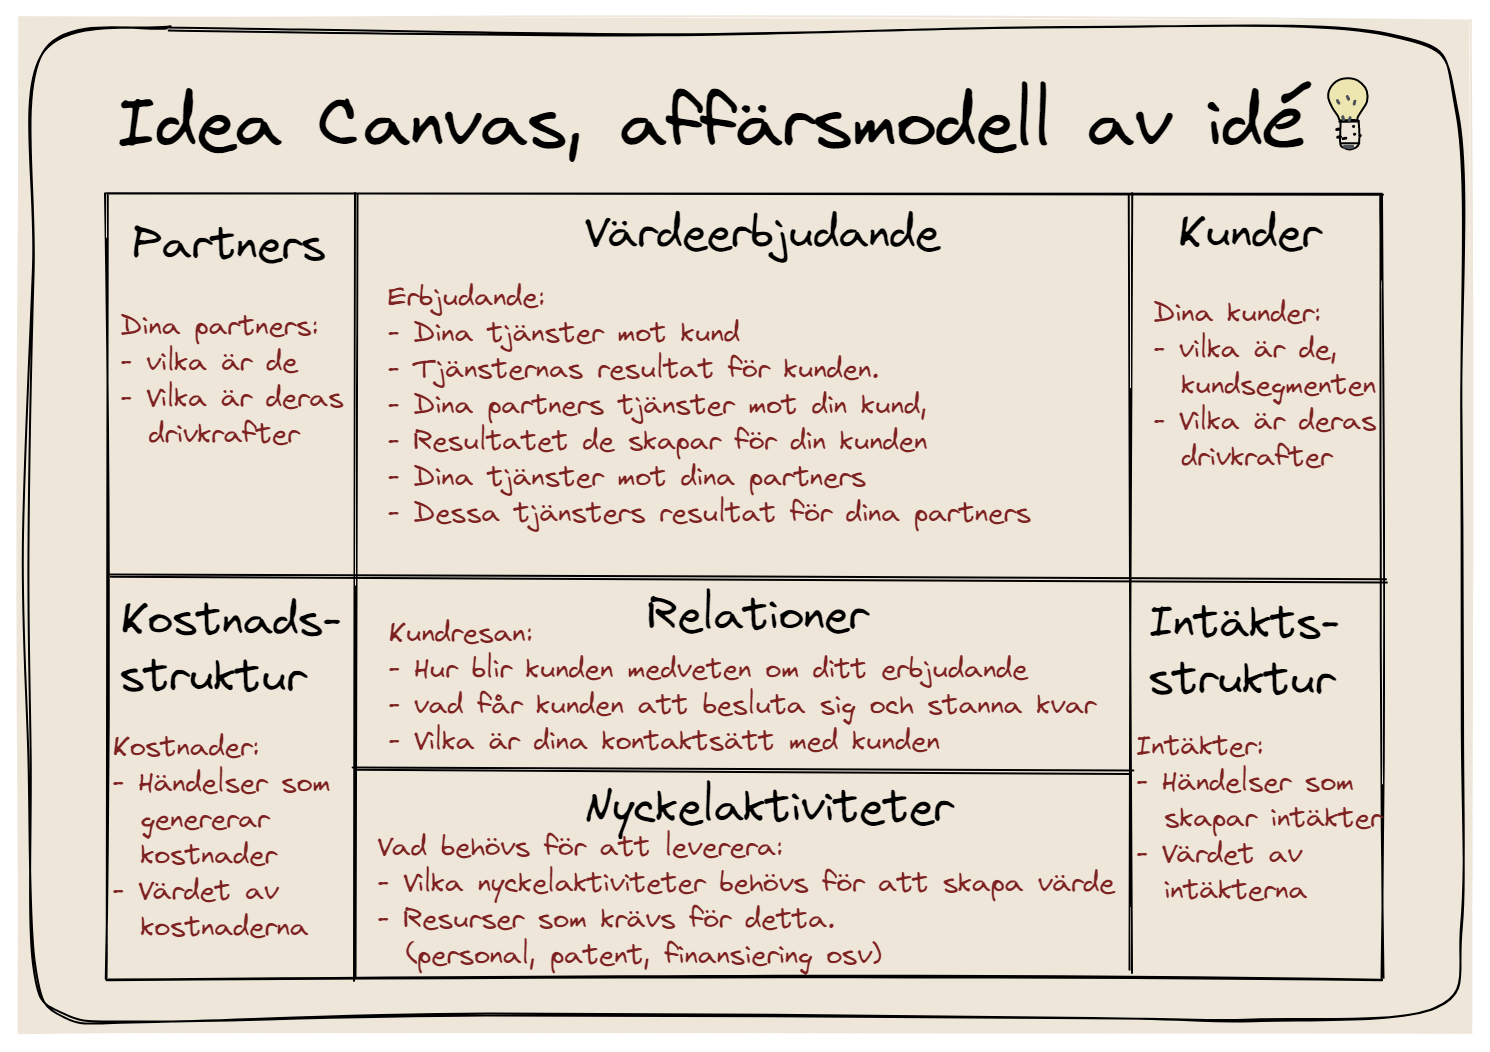 Idea Canvas, affärsmodell av idé
Partners
Dina partners:
- vilka är de
- Vilka är deras
drivkrafter
Värdeerbjudande
Erbjudande:
- Dina tjänster mot kund
- Tjänsternas resultat för kunden.
- Dina partners tjänster mot din kund,
- Resultatet de skapar för din kunden
- Dina tjänster mot dina partners
- Dessa tjänsters resultat för dina partners
Kunder
Dina kunder:
- vilka är de,
kundsegmenten
- Vilka är deras
drivkrafter
Kostnads-
struktur
Kostnader:
- Händelser som
genererar
kostnader
- Värdet av
kostnaderna
Relationer
Kundresan:
- Hur blir kunden medveten om ditt erbjudande
- vad får kunden att besluta sig och stanna kvar
- Vilka är dina kontaktsätt med kunden
Nyckelaktiviteter
Vad behövs för att leverera:
- Vilka nyckelaktiviteter behövs för att skapa värde
- Resurser som krävs för detta.
(personal, patent, finansiering osv)
Intäkts-
struktur
Intäkter:
- Händelser som
skapar intäkter
- Värdet av
intäkterna